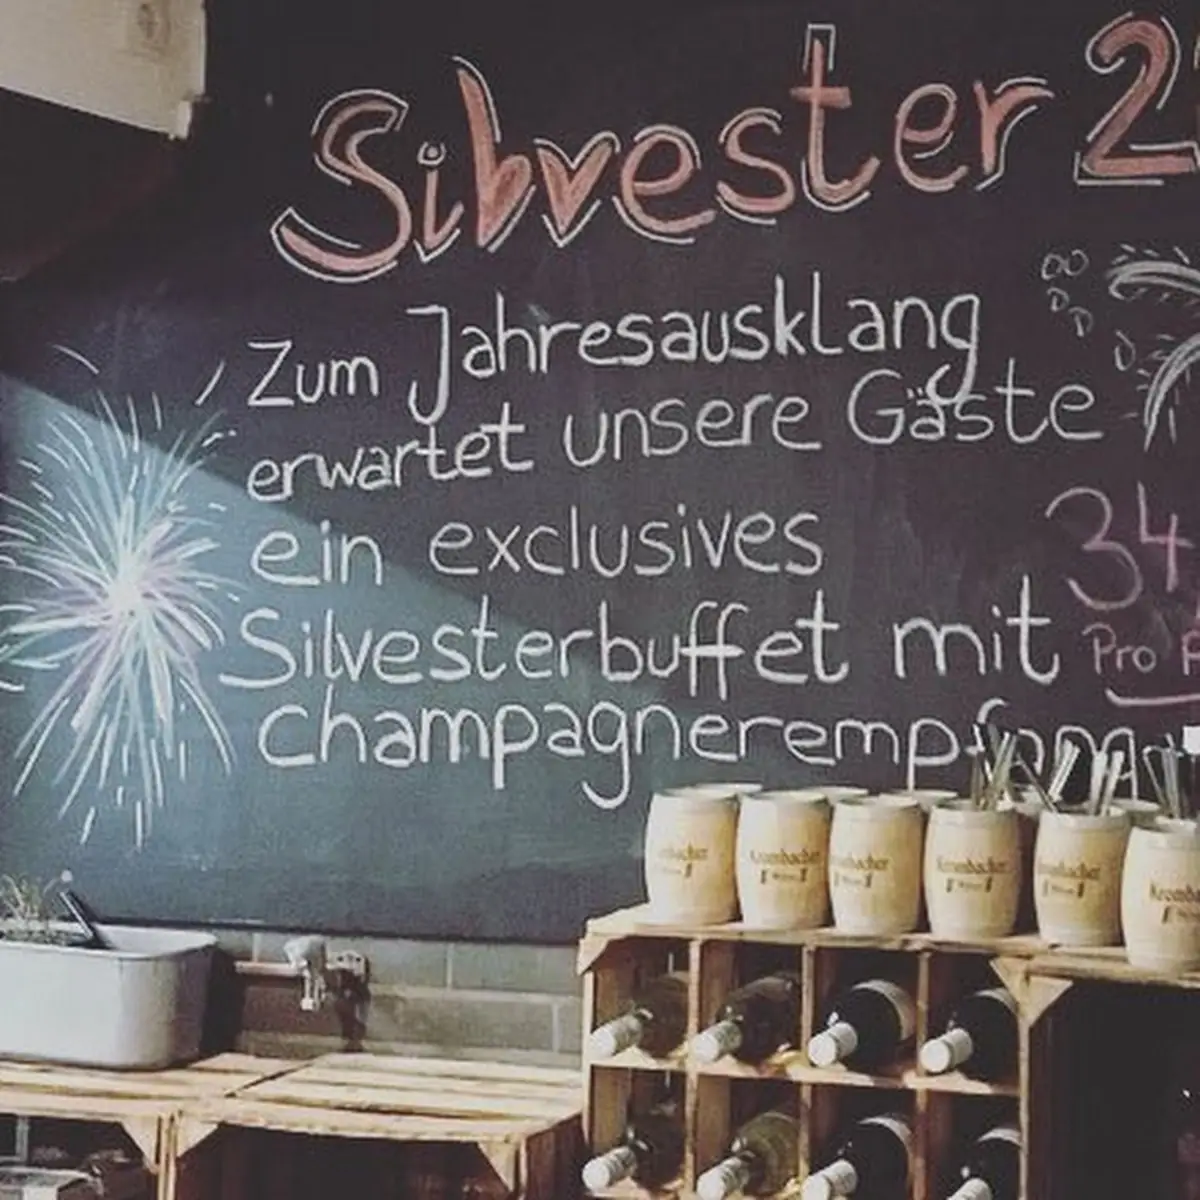 Silvester 2
Zum Jahresausklang
erwartet unsere Gäste
ein exclusives
Silvesterbuffet mit
champagnerempfang
34
Pro
Krombacher
Krombacher
Krombacher
Krombacher